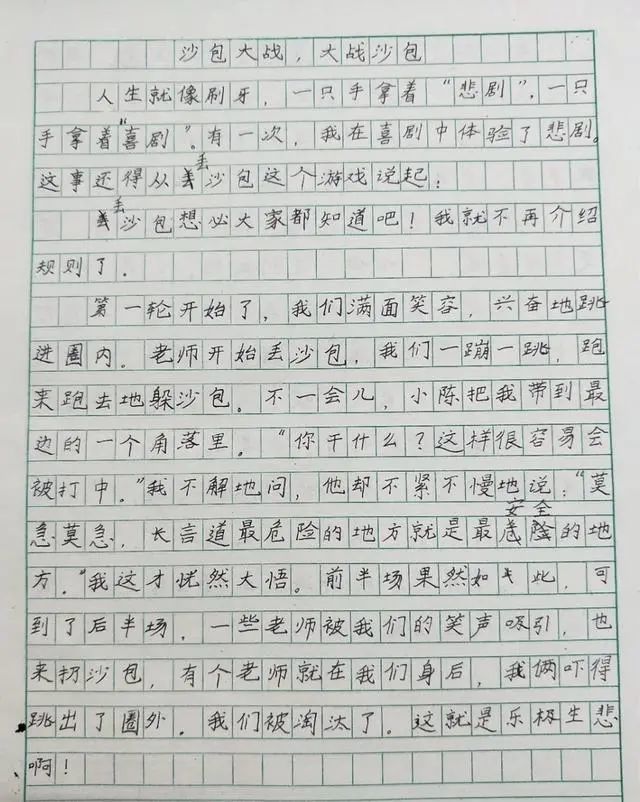 沙包大战，大战沙包
人生就像刷牙，一只手拿着“悲剧”，一只
手拿着“喜剧”。有一次，我在喜剧中体验了悲剧。
这事还得从丢沙包这个游戏说起：
丢沙包想必大家都知道吧！我就不再介绍
规则了．
第一轮开始了，我们满面笑容，兴奋地跳
进圈内。老师开始丢沙包，我们一蹦一跳，跑
来跑去地躲沙包。不一会儿，小陈把我带到最
边的一个角落里。“你干什么？这样很容易会
被打中．”我不解地问，他却不紧不慢地说：“莫
急莫急，长言道最危险的地方就是最安全的地
方．”我这才恍然大悟。前半场果然如此，可
到了后半场，一些老师被我们的笑声吸引，也
来扔沙包，有个老师就在我们身后，我俩吓得
跳出了圈外．我们被淘汰了。这就是乐极生悲
啊！